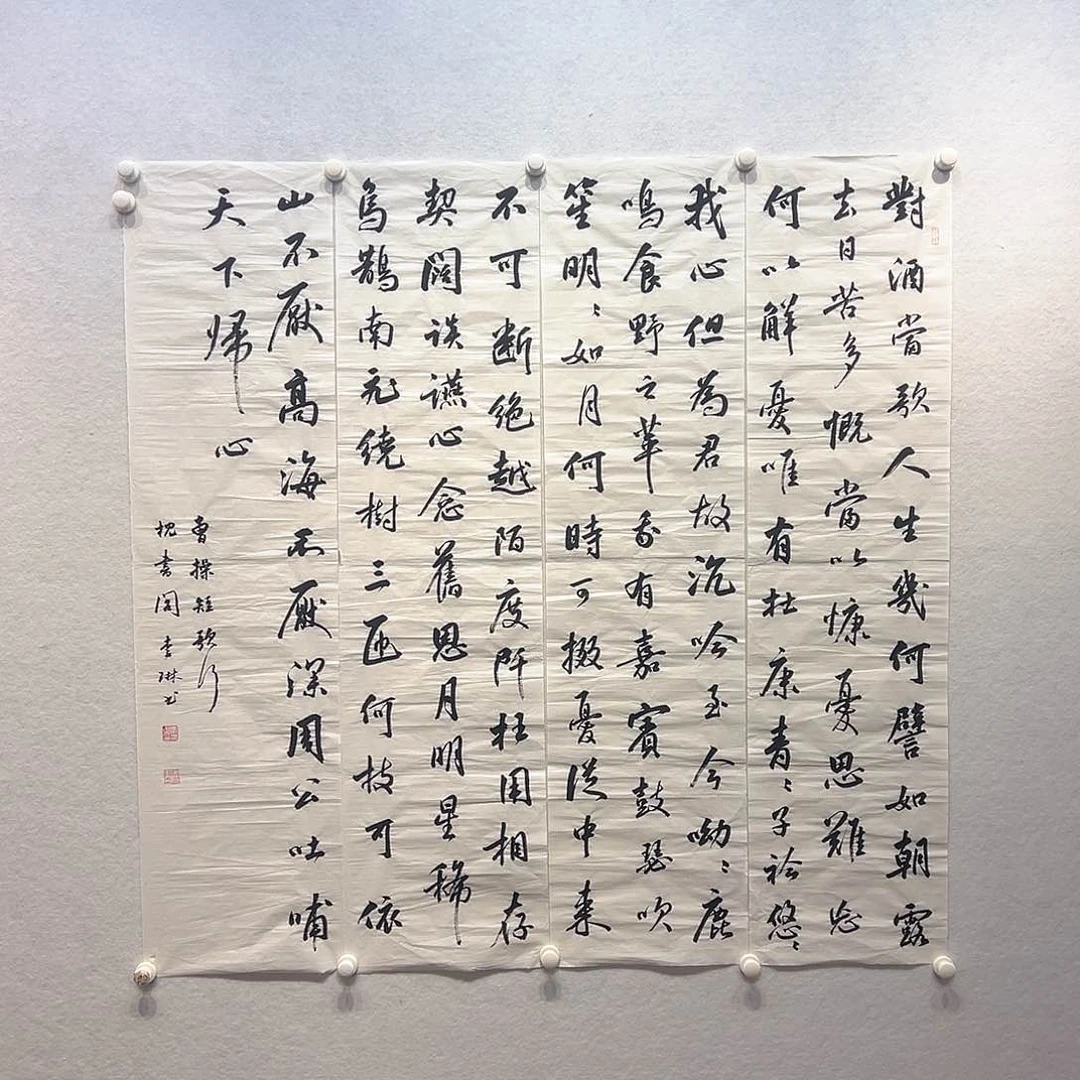 對酒當歌人生幾何譬如朝露
去日苦多慨當以慷憂思難忘
何以解憂唯有杜康青〻子衿悠〻
我心但為君故沉吟至今呦〻鹿
鳴食野之華我有嘉賓鼓瑟吹
笙明〻如月何時可掇憂從中来
不可断絕越陌度阡枉用相存
契闊談讌心念舊恩月明星稀
烏鵲南飛繞樹三匝何枝可依
山不厭高海不厭深周公吐哺
天下帰心
曹操短歌行
槐書閣李琳书